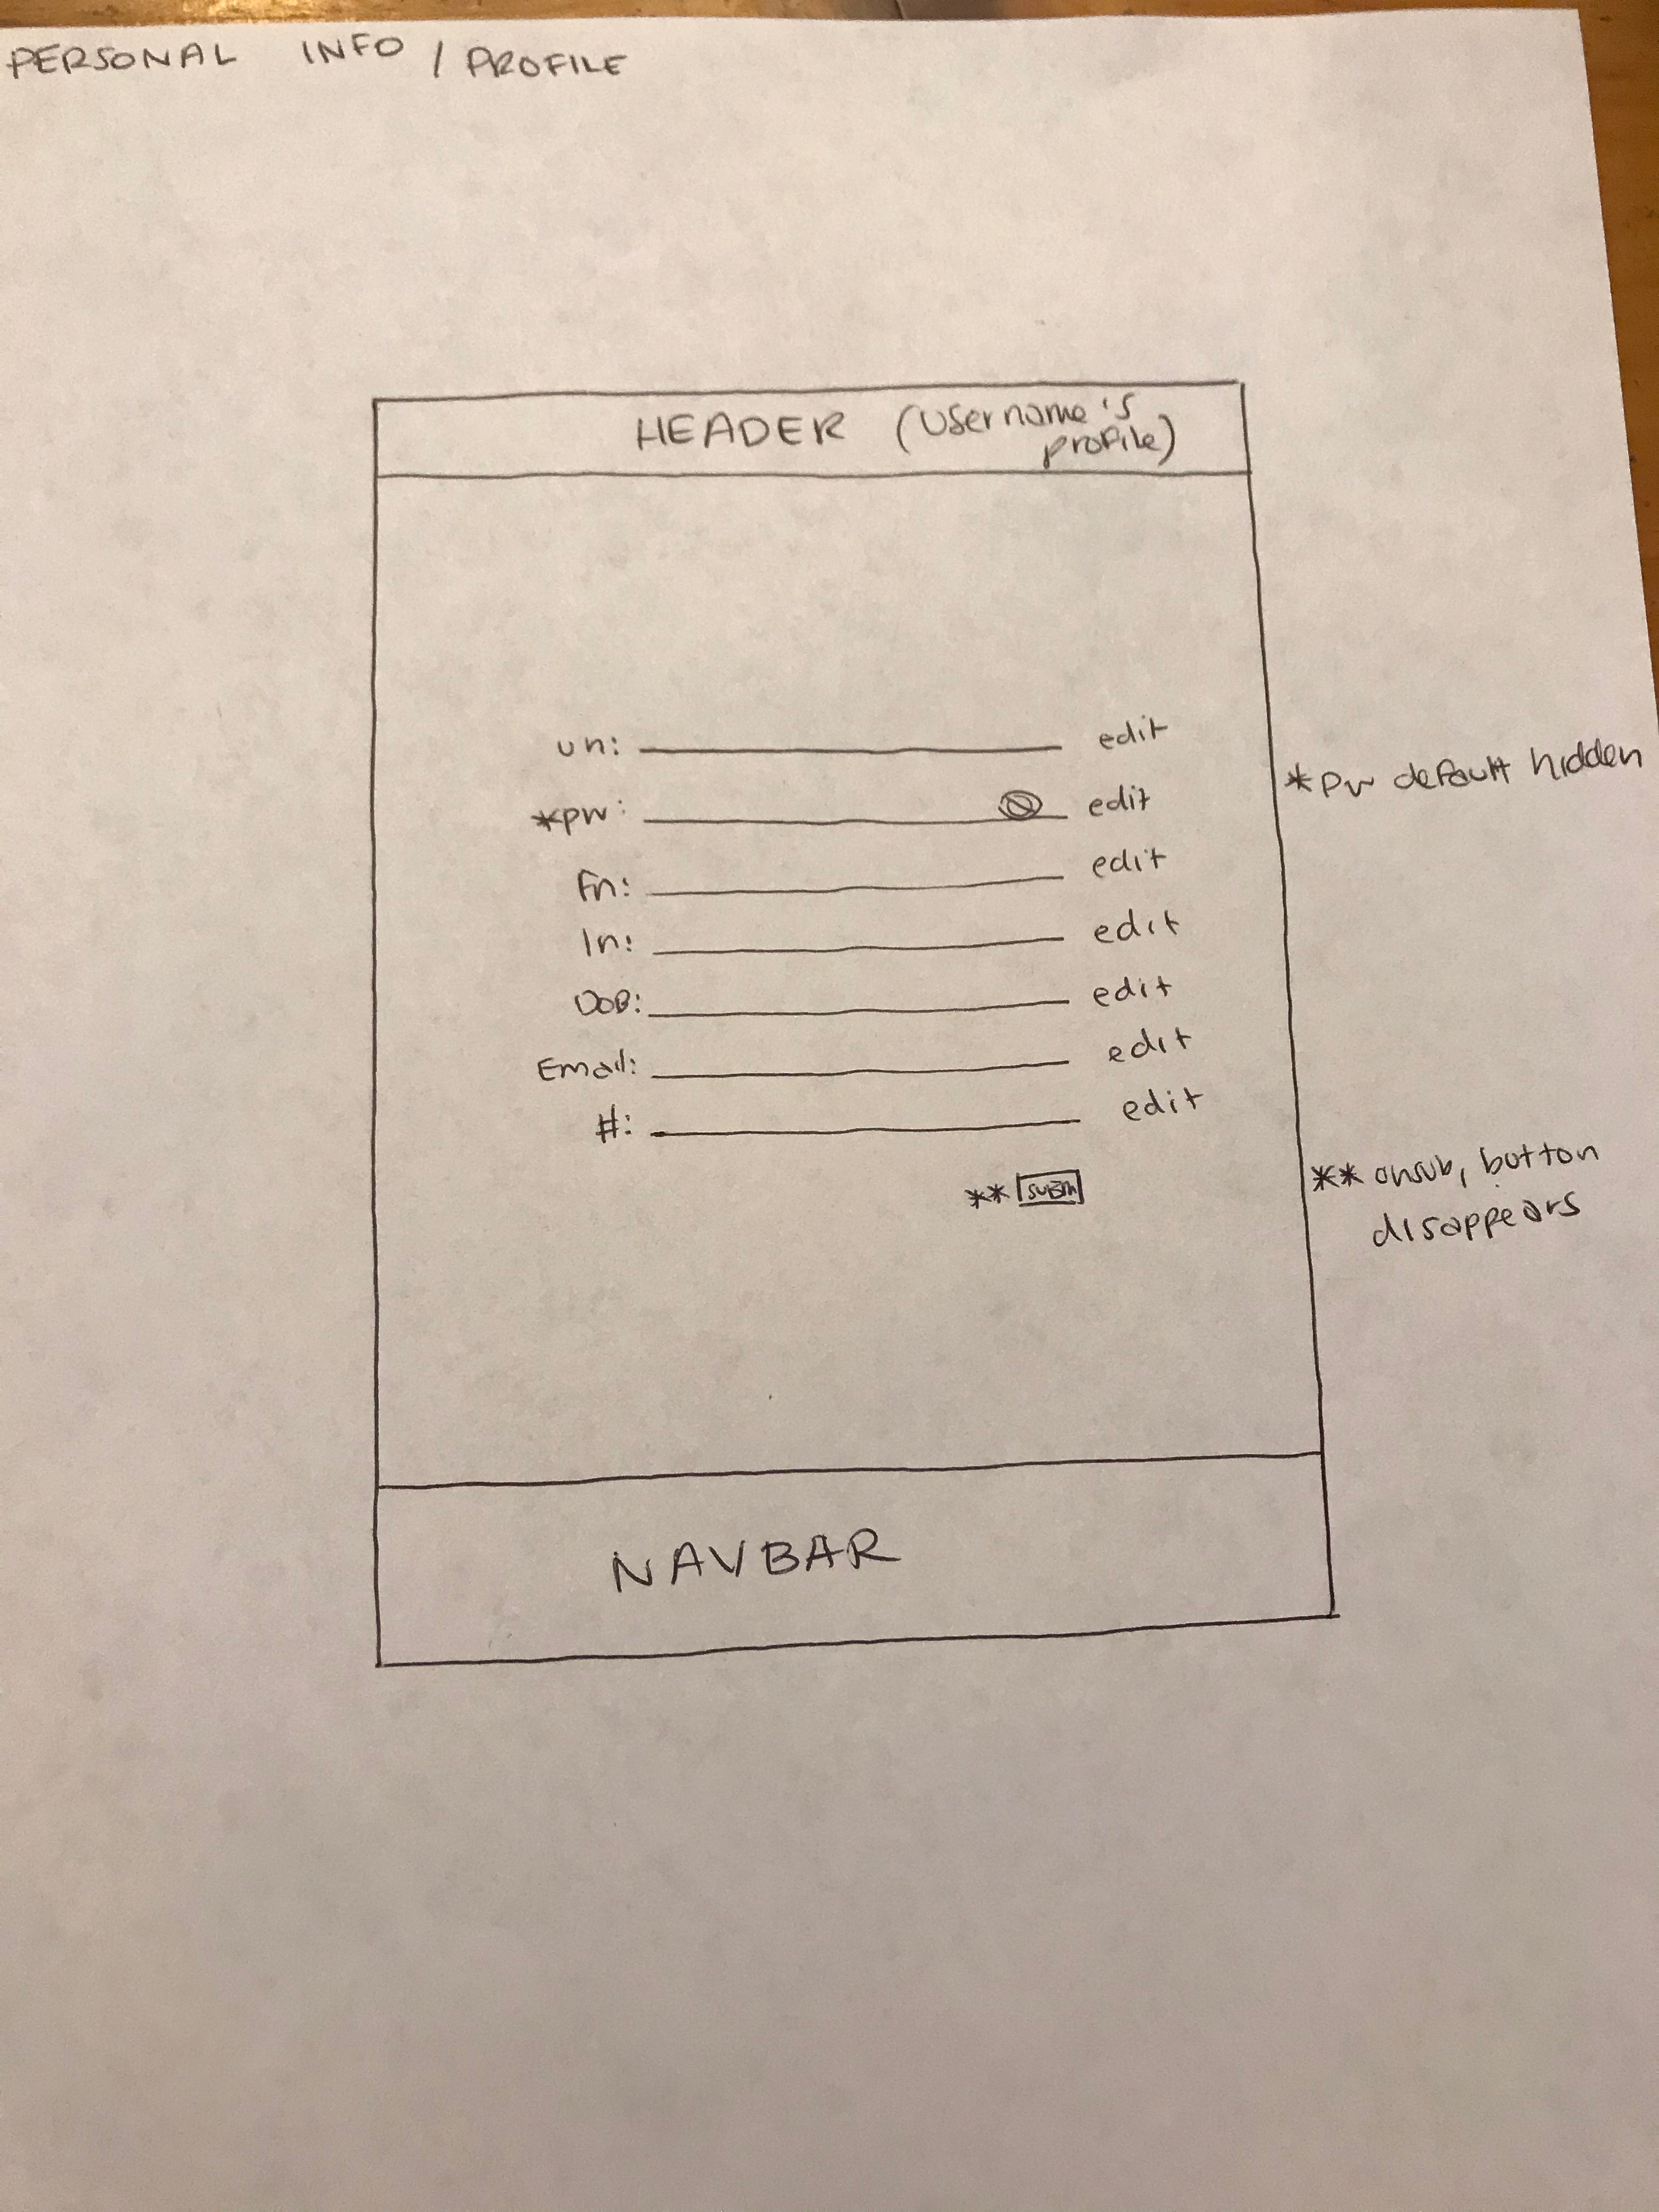 PERSONAL INFO / PROFILE
HEADER (Username's
profile)
un: edit
*pw: edit
*pw default hidden
fn: edit
ln: edit
DOB: edit
Email: edit
#: edit
** subm
** onsub, button
disappears
NAVBAR